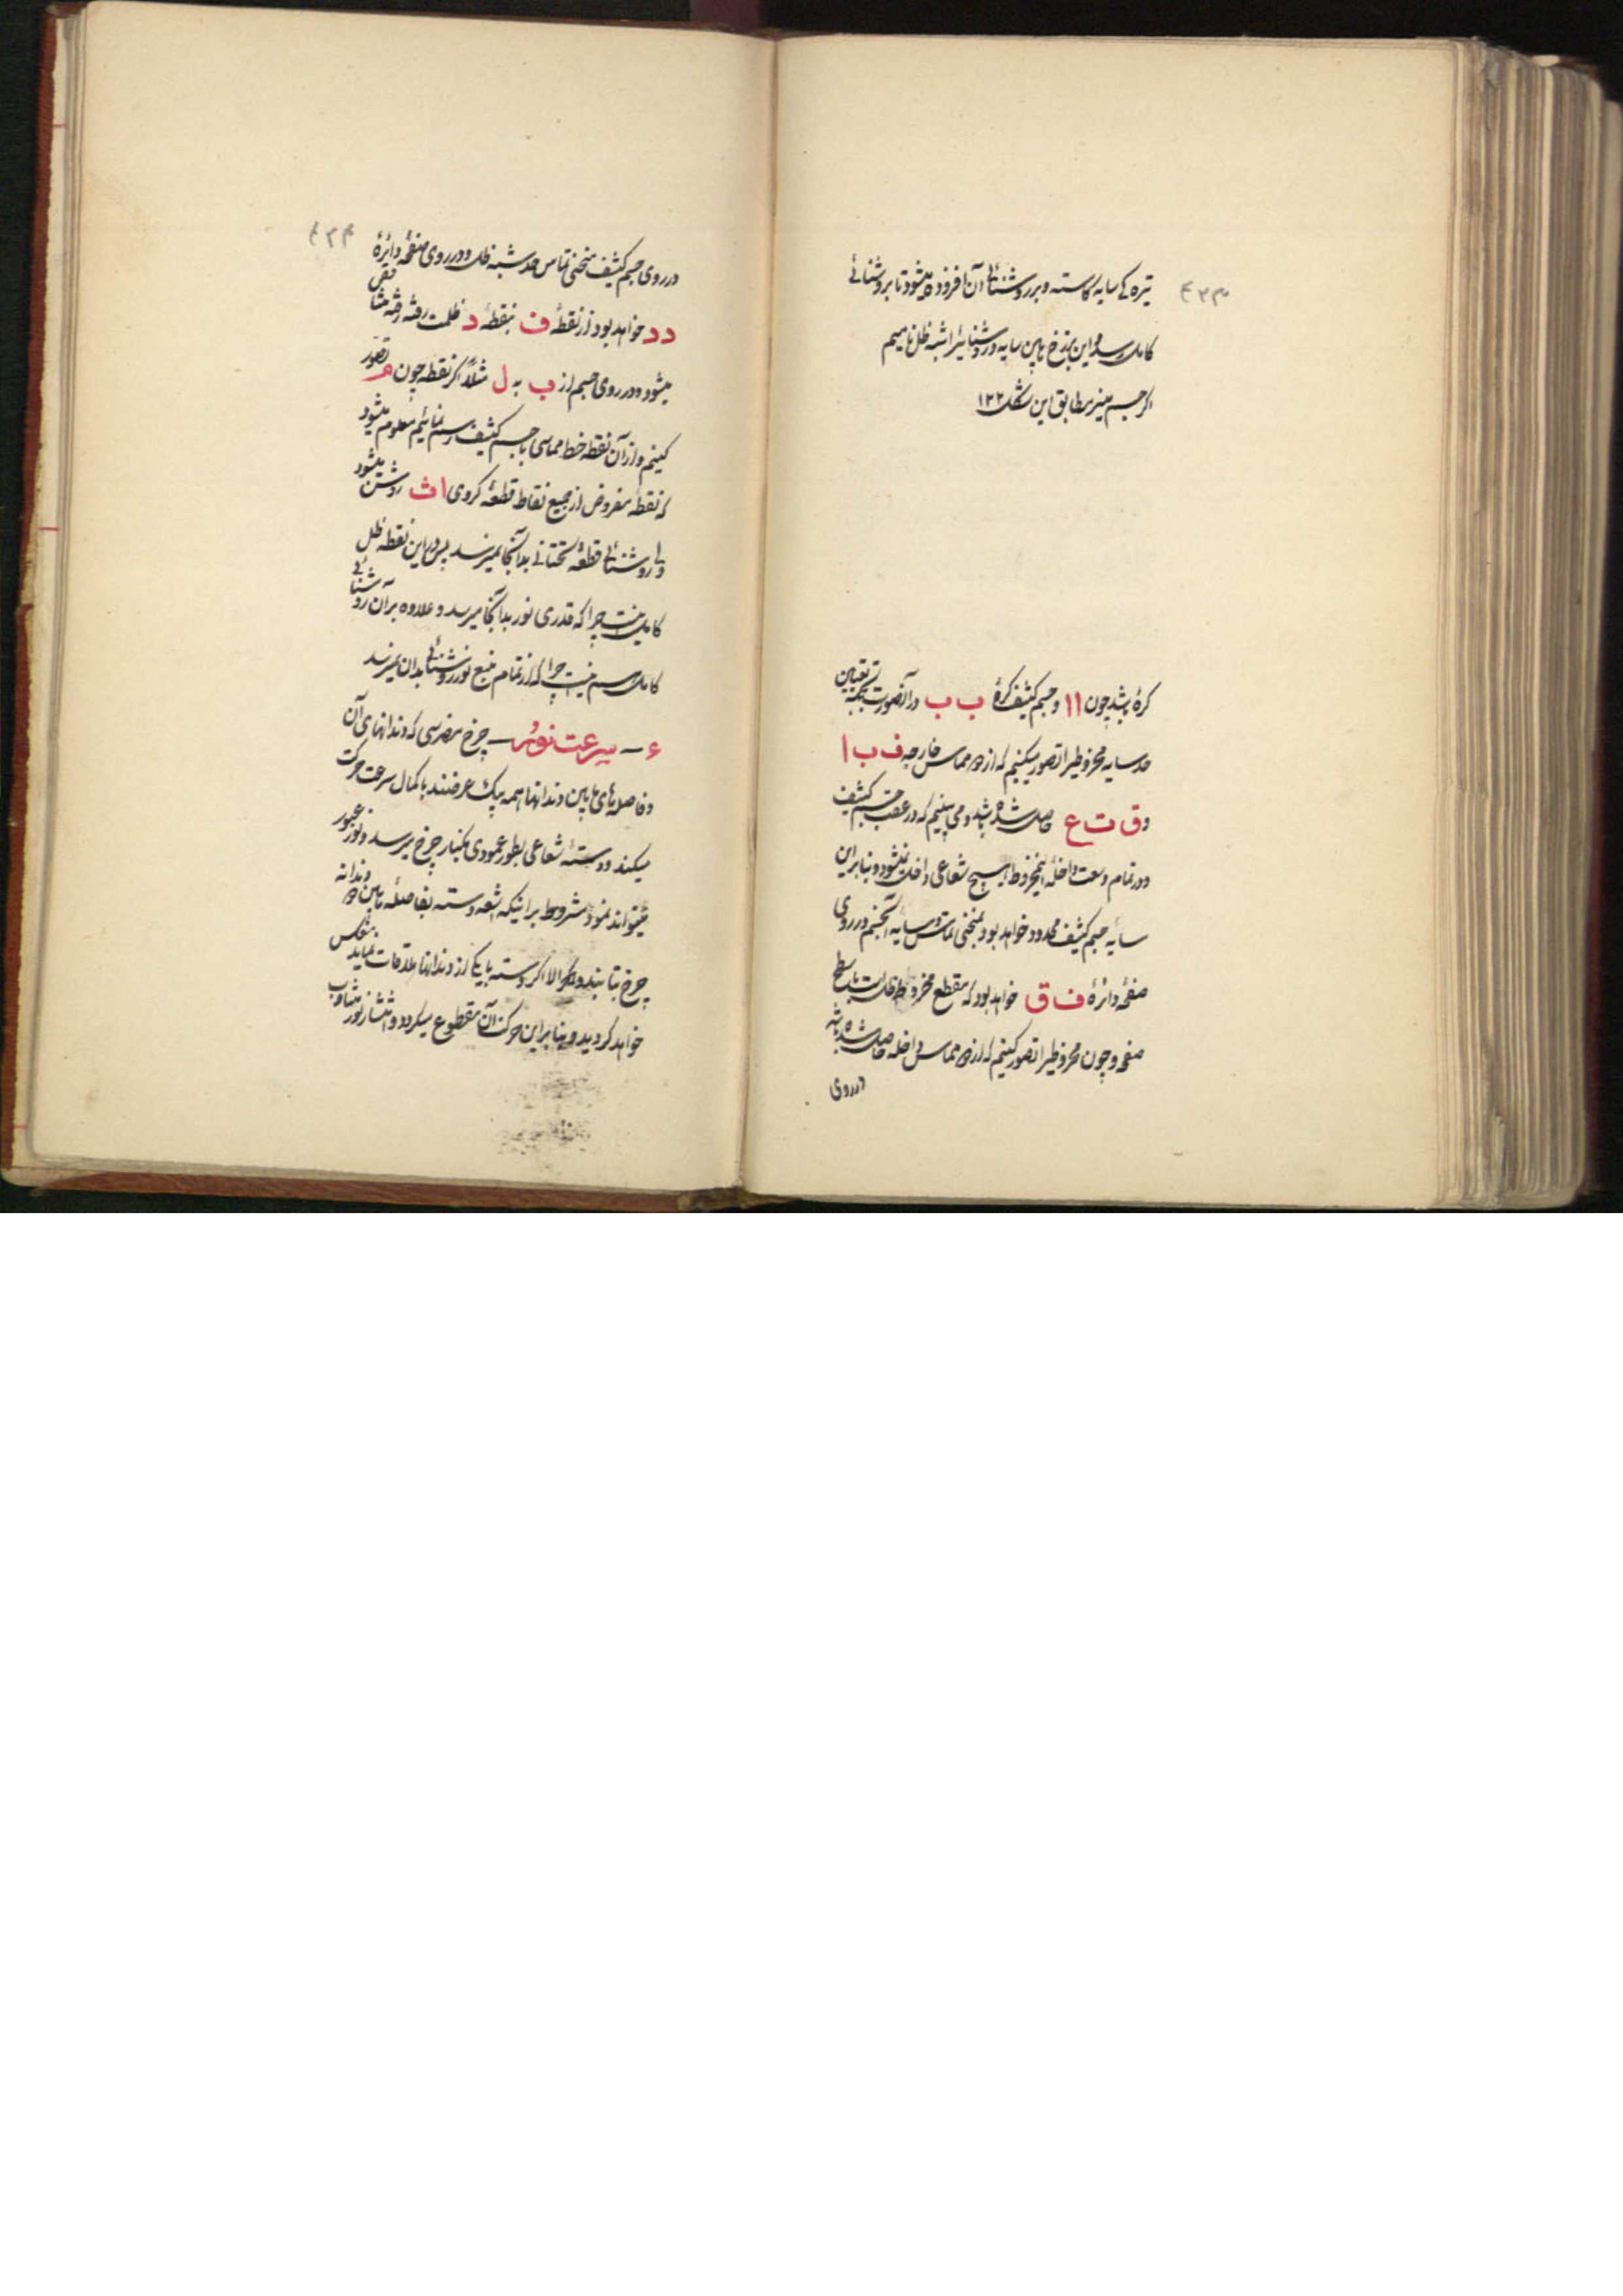 ۴۳۳
تیره‌کی سایه کاسته و بر روشنائی آن افزوده میشود تا بروشنائی
کامل رسد و این برزخ مابین سایه و روشنائی را شبه ظل نامیم
اگر جسم منیر مطابق این شکل ۱۲۲
کرهٔ باشد چون ۱۱ و جسم کثیف کرهٔ ب ب در آنصورت بجهة تعیین
حد سایه مخروطی را تصور میکنیم که از دو مماس خارجه ف ب ا
و ق ت ع حاصل شده باشد و می بینیم که در عقب جسم کثیف
و در تمام وسعت داخله اینمخروط هیچ شعاعی داخل نمیشود و بنابراین
سایهٔ جسم کثیف محدود خواهد بود بمنحنی تماس و سایه آنجسم در روی
صفحه دائرهٔ ف ق خواهد بود که مقطع مخروط ظل است با سطح
صفحه و چون مخروطی را تصور کنیم که از دو مماس داخله حاصل شده باشد
در روی
۴۳۴
در روی جسم کثیف منحنی تماس حد شبه ظل و در روی صفحه دائرهٔ
د د خواهد بود از نقطهٔ ف بنقطهٔ د ظلمت رفته رفته متناقص
میشود و در روی جسم از ب به ل مثلاً اگر نقطه چون م تصور
کنیم و از آن نقطه خط مماسی با جسم کثیف رسم نمائیم معلوم میشود
که نقطه مفروض از جمیع نقاط قطعهٔ کروی ا ث روشن میشود
ولی روشنائی قطعهٔ تحتانی بدانجا نمیرسد پس در این نقطه ظل
کامل نیست چرا که قدری نور بدانجا میرسد و علاوه بر آن روشنائی
کامل هم نیست چرا که از تمام منبع نور روشنائی بدان نمیرسد
۶ – سرعت نور – چرخ مضرسی که دندانهای آن
و فاصله‌های مابین دندانها همه بیک عرضند با کمال سرعت حرکت
میکند و دستهٔ شعاعی بطور عمودی بکنار چرخ میرسد و نور عبور
نمیتواند نمود مشروط بر اینکه اشعه دسته بفاصلهٔ مابین دو دندانه
چرخ بتابند و الا اگر دسته با یکی از دندانها ملاقات نماید منعکس
خواهد گردید و بنابراین حرکت آن مقطوع میکردد و انتشار نور متناوب